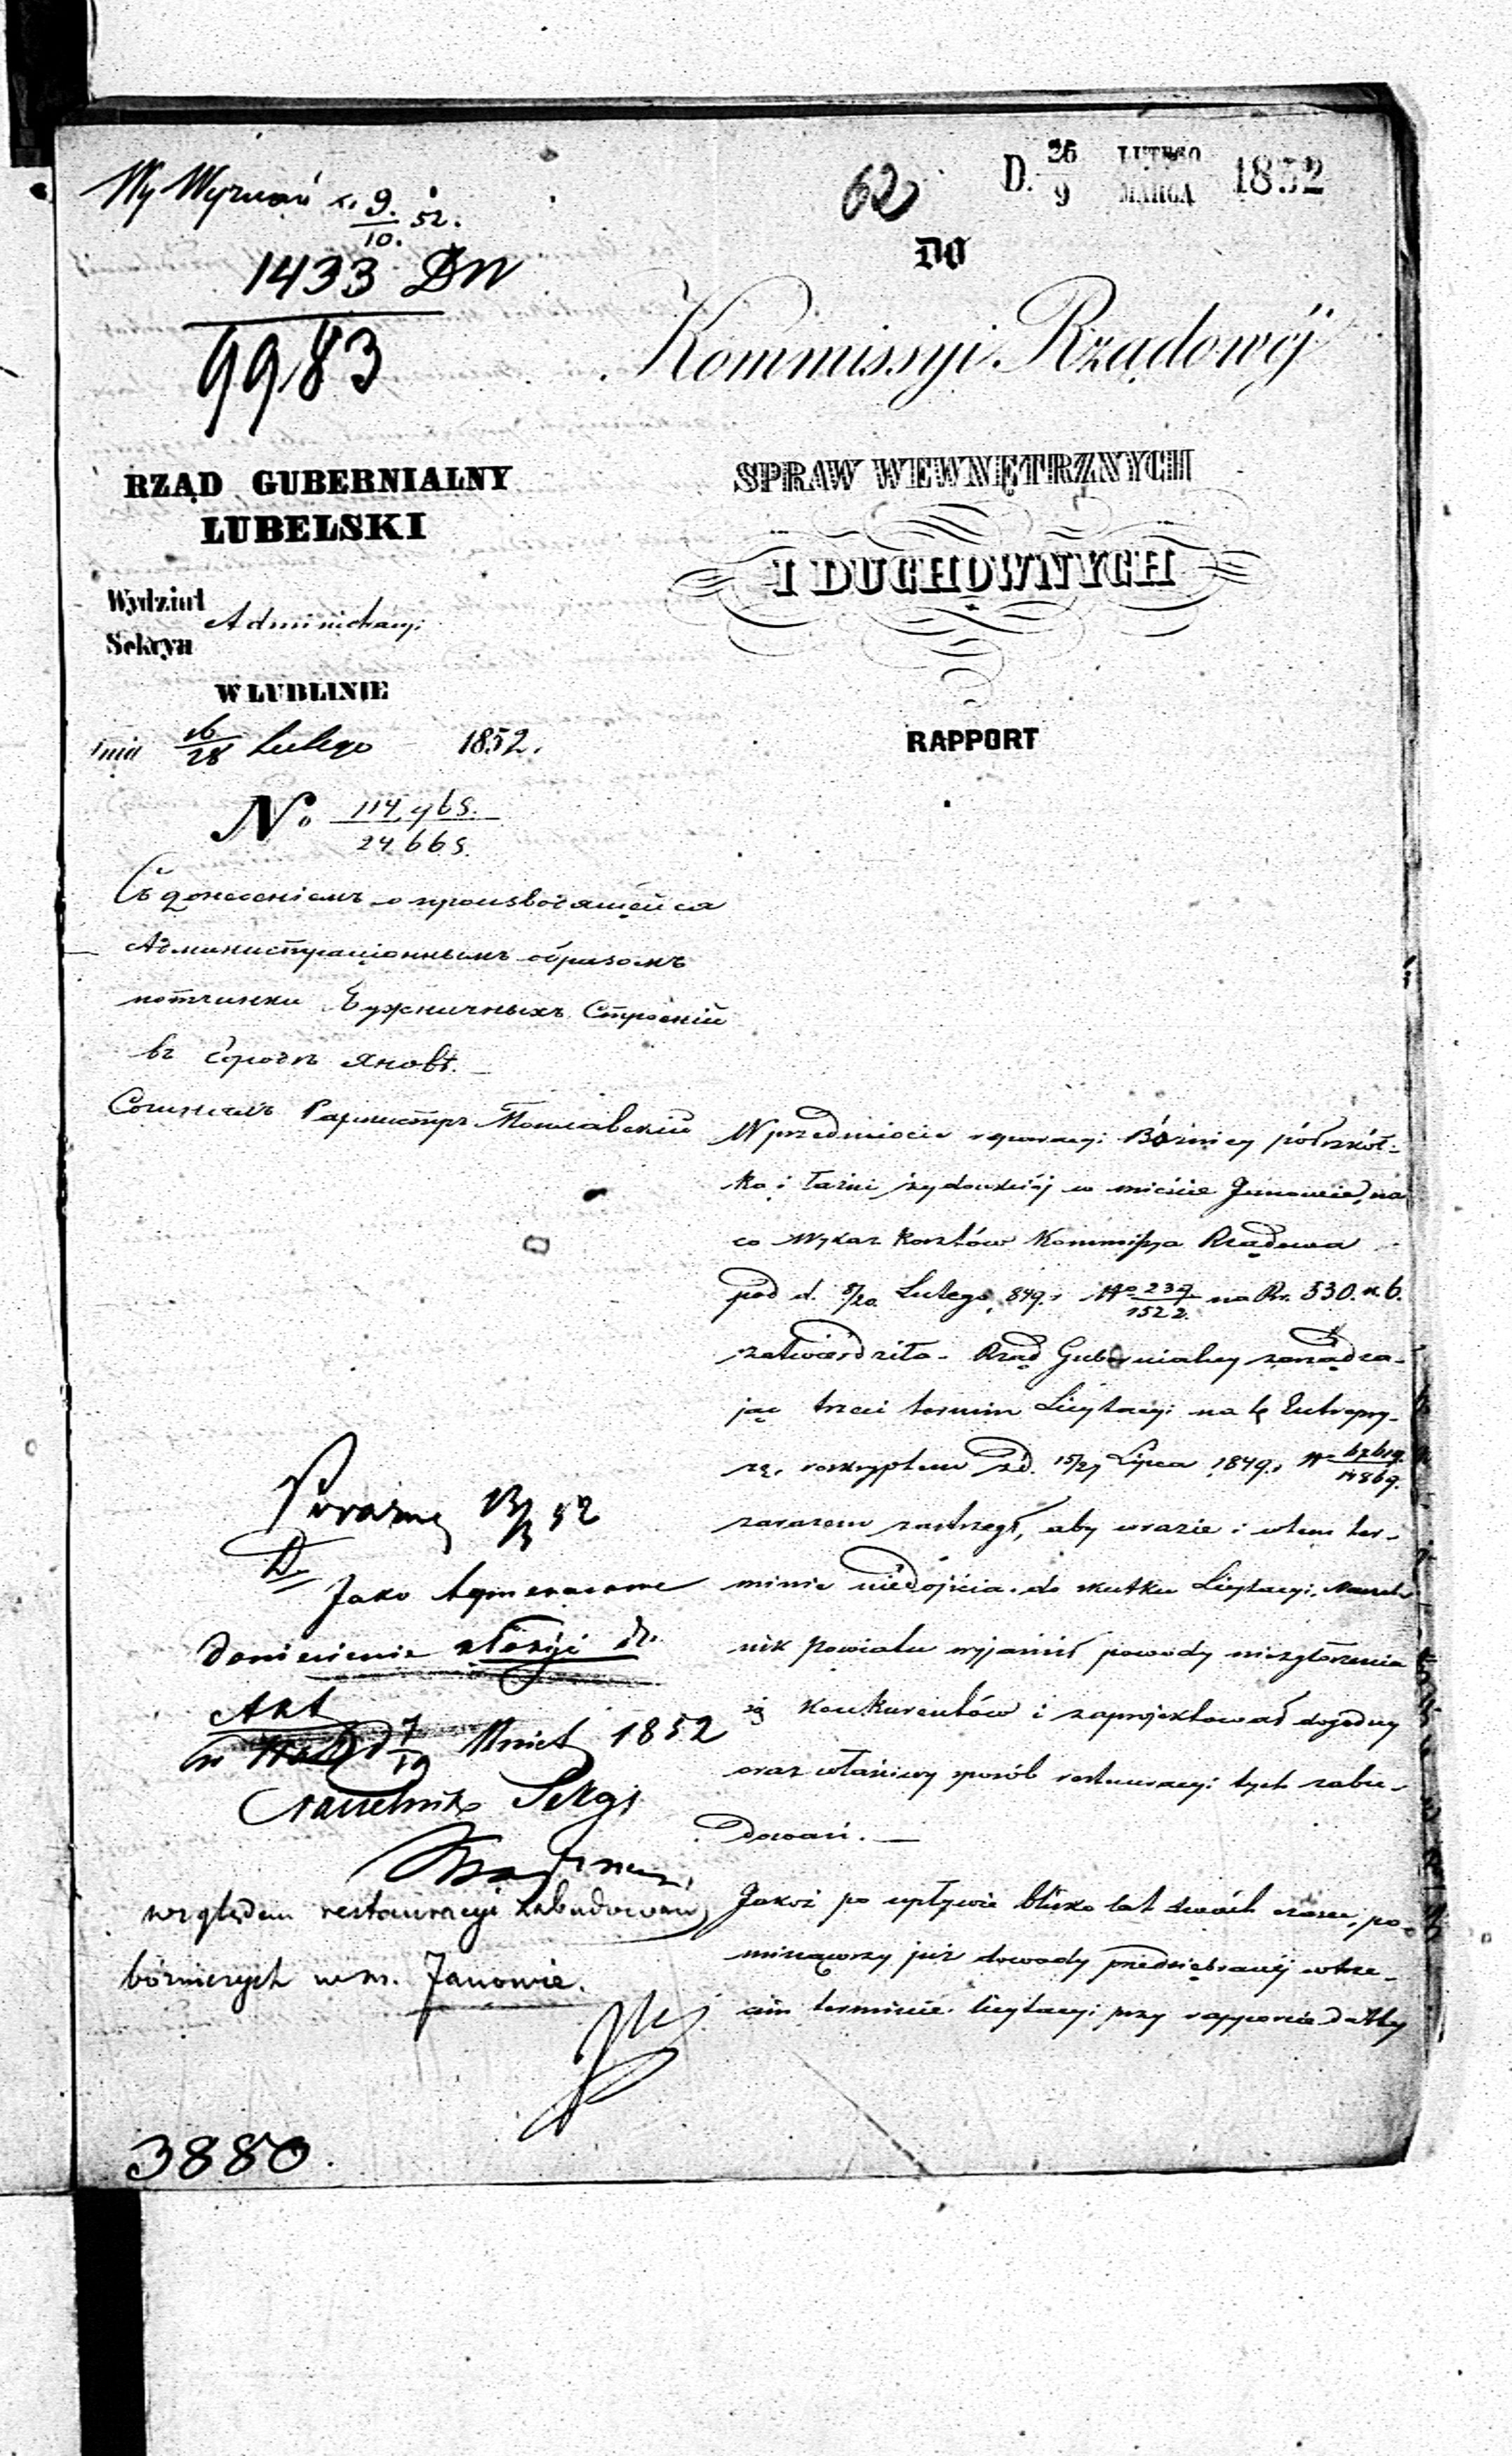 Wy Wyznań 9/10. 52.
1433 DN
9983
62
D. 26/9 LUTEGO/MARCA 1852
DO
Kommissyi Rządowéj
SPRAW WEWNĘTRZNYCH
I DUCHOWNYCH
RAPPORT
RZĄD GUBERNIALNY
LUBELSKI
Wydział Administracyi
Sekcya
W LUBLINIE
dnia 16/28 Lutego 1852.
No 114,965./24665.
Съ донесеніемъ о производящейся
Администраціоннымъ образомъ
починки Бужничныхъ Строеній
въ Городѣ Яновѣ.
Сочинялъ
W przedmiocie reperacyi Bóżnicy półszkół-
ka i łaźni żydowskiéj w mieście Janowie, na
co Wykaz kosztów Kommissya Rządowa
pod d. 8/20 Lutego 849. No 237/1522. na Rs. 530. k. 6.
zatwierdziła. Rząd Gubernialny zarządza-
jąc trzeci termin Licytacyi na tę Entrepry-
zę, reskryptem z d. 15/27 Lipca 1849.
zarazem zastrzegł, aby w razie i w tem ter-
minie niedojścia do skutku Licytacyi, Naczel-
nik Powiatu wyjaśnił powody niezgłoszenia
się konkurentów i zaprojektował dogodny
oraz właściwy sposób restauracyi tych zabu-
dowań.
Jakoż po upływie blisko lat dwóch czasu, po-
minąwszy już dowody przedsiębranéj w trze-
cim terminie licytacyi przy rapporcie datty
52
Jako tymczasowe
doniesienie złożyć do
Akt
7/19 1852
Naczelnik Sekcyi
względem restauracyi zabudowań
bóżniczych w m. Janowie.
3880.